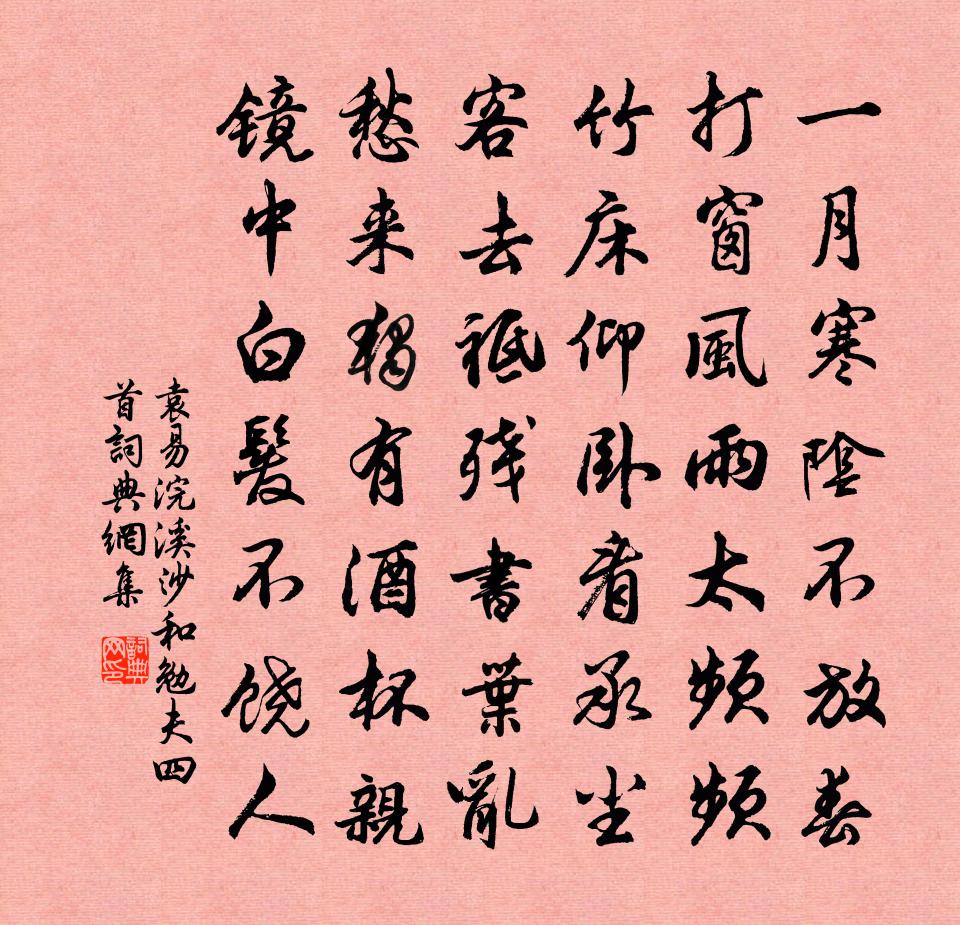 一月寒陰不放春
打窗風雨太頻頻
竹床仰卧看承尘
客去祗残書葉亂
愁来独有酒杯親
镜中白髮不饶人
袁易浣溪沙和勉夫四
首詞典網集
詞典网印